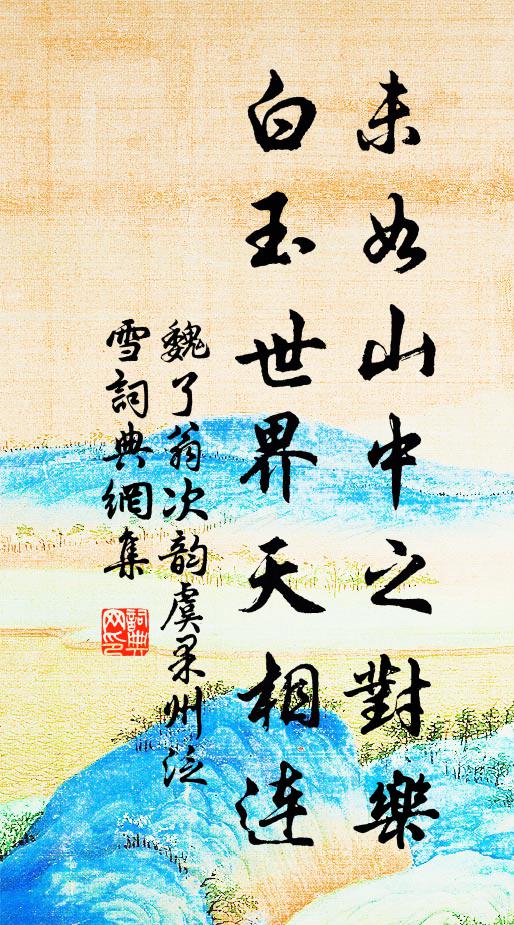 未如山中之對樂
白玉世界天相连
魏了翁次韵虞果州泛
雪詞典網集
詞典
网印